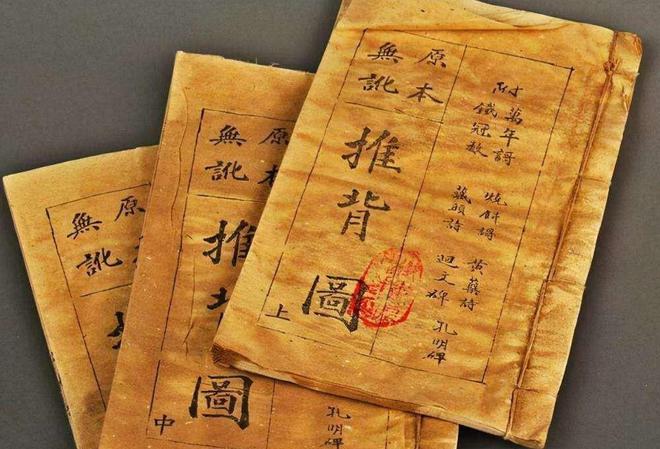 原本
無訛
推背圖
上
附
萬年謌
鐵冠数
燒餅謌
藏頭詩
黃蘗詩
迴文碑
孔明碑
原本
無訛
推背圖
中
孔明碑
原本
無訛